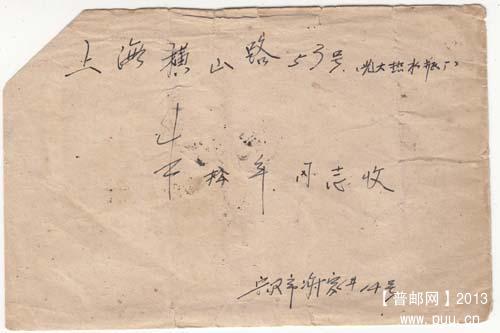 上海横山路53号(光大热水瓶厂)
松年同志收
市谢家井14号
【普邮网】2013
www.puu.cn